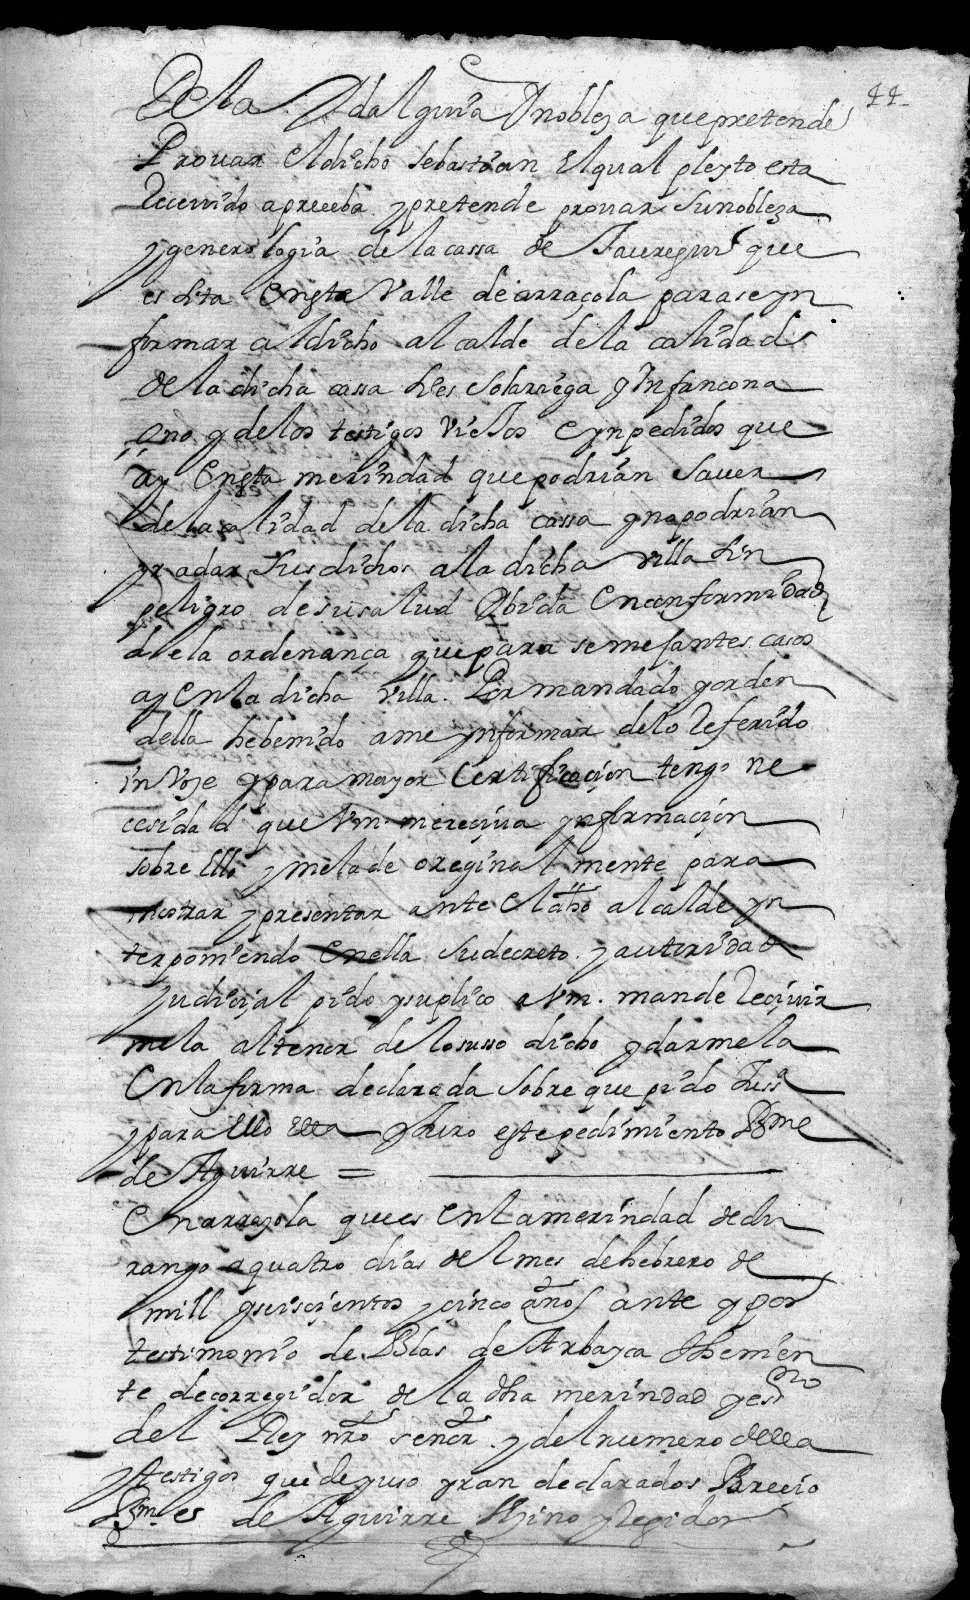 44
de la Ydalguia y nobleza que pretende
Provar el dicho sebastian el qual pleyto esta
Recevido a prueba y pretende provar su nobleza
y genero logia de la cassa de Jauregui que
es sita en esta Valle de arraçola para se yn
formar al dicho alcalde de la calidad
de la dicha cassa si es solariega y ynfancona
o no y de los testigos viejos e ynpedidos que
ay en esta merindad que podrian saver
de la calidad de la dicha cassa y no podrian
yr a dar sus dichos a la dicha villa sin
peligro de su salud avida en conformidad
de la ordenança que para semejantes casos
ay en la dicha villa. Por mandado y orden
della he benido a me ynformar de lo Referido
in voze y para mayor certificacion tengo ne
cesidad que Vm. me reciva ynformacion
sobre ello y me la de oreginalmente para
mostrar y presentar ante el dho alcalde yn
terponiendo en ella su decreto y autoridad
judicial pido y suplico a Vm. mande Recivir
mela al tenor de lo susso dicho y darmela
en la forma declarada sobre que pido Juss^a
y para ello etta Juro este pedimiento Bme
de Aguirre =
En arrazola que es en la merindad de du
rango a quatro dias del mes de hebrero de
mill y seiscientos y cinco años ante y por
testimonio de Blas de Arbayca theníen
te de corregidor de la dha merindad y es^no
del Rey nro señor y del numero della
y testigos que de yuso yran declarados Parecio
Bm^e es de Aguirre Sino y Regidor